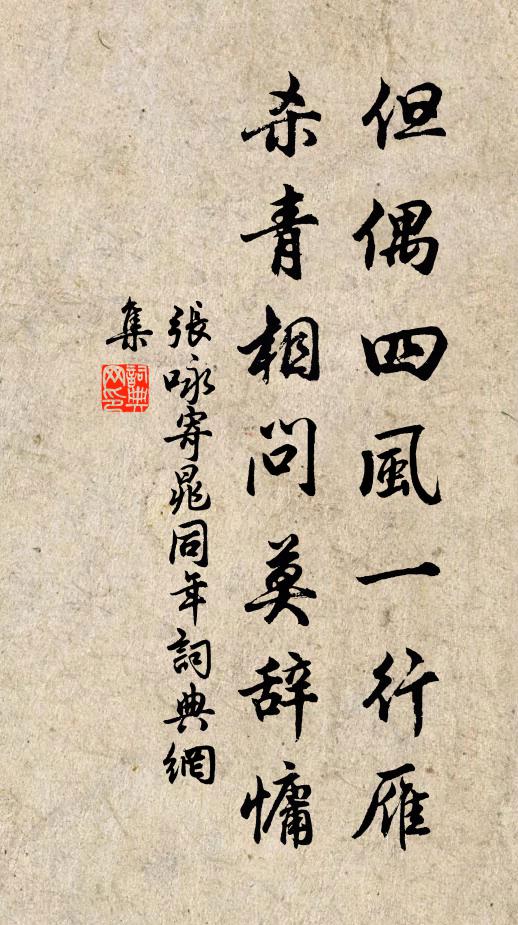 但偶四風一行雁
杀青相問莫辞慵
張咏寄晁同年詞典網
集
詞典网印